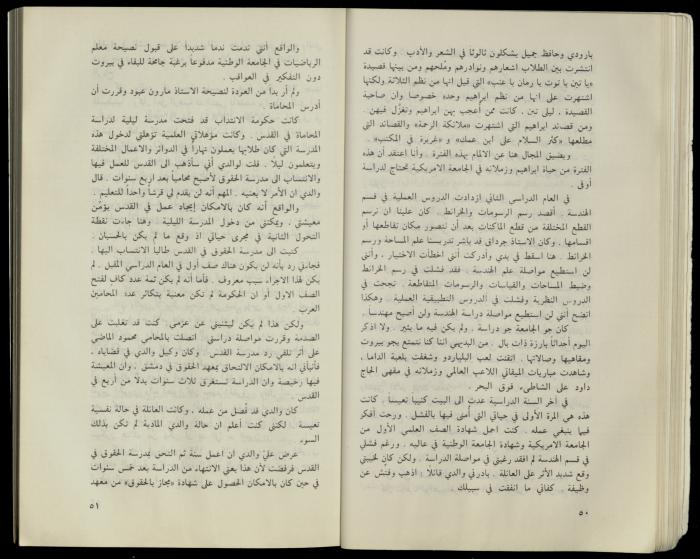 بارودي وحافظ جميل يشكلون ثالوثا في الشعر والأدب . وكانت قد
انتشرت بين الطلاب اشعارهم ونوادرهم ومُلحهم ومن بينها قصيدة
«يا تين يا توت يا رمان يا عنب» التي قيل انها من نظم الثلاثة ولكنها
اشتهرت على انها من نظم ابراهيم وحده خصوصا وان صاحبة
القصيدة ، ليلى تين ، كانت ممن أعجب بهن ابراهيم وتغزّل فيهن .
ومن قصائد ابراهيم التي اشتهرت «ملائكة الرحمة» والقصائد التي
مطلعها «كثر السلام على ابن عمك» و «غريرة في المكتب» .
ويضيق المجال هنا عن الالمام بهذه الفترة . وأنا اعتقد أن هذه
الفترة من حياة ابراهيم وزملائه في الجامعة الامريكية تحتاج لدراسة
أوفى .
في العام الدراسي الثاني ازدادت الدروس العملية في قسم
الهندسة . أقصد رسم الرسومات والخرائط . كان علينا ان نرسم
القطع المختلفة من قطع الماكنات بعد أن نتصور مكان تقاطعها أو
اقسامها . وكان الاستاذ جرداق قد باشر تدريسنا علم المساحة ورسم
الخرائط . هنا اسقط في يدي وأدركت أنني اخطأت الاختيار ، وأنني
لن استطيع مواصلة علم الهندسة . فقد فشلت في رسم الخرائط
وضبط المساحات والقياسات والرسومات المتقاطعة . نجحت في
الدروس النظرية وفشلت في الدروس التطبيقية العملية . وهكذا
اتضح أنني لن استطيع مواصلة دراسة الهندسة ولن أصبح مهندسا .
كان جو الجامعة جو دراسة . ولم يكن فيه ما يثير . ولا اذكر
اليوم أحداثاً بارزة ذات بال . من البديهي اننا كنا نتمتع بجو بيروت
ومقاهيها وصالاتها . اتقنت لعب البلياردو وشغفت بلعبة الداما ،
وشاهدت مباريات الميقاتي اللاعب العالمي وزملائه في مقهى الحاج
داود على الشاطىء فوق البحر .
في آخر السنة الدراسية عدت الى البيت كئيبا تعيسا . كانت
هذه هي المرة الأولى في حياتي التي أُمنى فيها بالفشل . ورحت أفكر
فيما ينبغي عمله . كنت احمل شهادة الصف العلمي الأول من
الجامعة الامريكية وشهادة الجامعة الوطنية في عاليه . ورغم فشلي
في قسم الهندسة لم افقد رغبتي في مواصلة الدراسة . ولكن كان لخيبتي
وقع شديد الأثر على العائلة . بادرني والدي قائلا : اذهب وفتش عن
وظيفة . كفاني ما انفقت في سبيلك .
٥٠
والواقع أنني ندمت ندما شديداً على قبول نصيحة معلم
الرياضيات في الجامعة الوطنية مدفوعا برغبة جامحة للبقاء في بيروت
دون التفكير في العواقب .
ولم أر بدا من العودة لنصيحة الاستاذ مارون عبود وقررت أن
أدرس المحاماة .
كانت حكومة الانتداب قد فتحت مدرسة ليلية لدراسة
المحاماة في القدس . وكانت مؤهلاتي العلمية تؤهلني لدخول هذه
المدرسة التي كان طلابها يعملون نهاراً في الدوائر والاعمال المختلفة
ويتعلمون ليلا . قلت لوالدي أني سأذهب الى القدس للعمل فيها
والانتساب الى مدرسة الحقوق لأصبح محامياً بعد اربع سنوات . قال
والدي ان الامر لا يعنيه . المهم أنه لن يقدم لي قرشاً واحداً للتعليم .
والواقع أنه كان بالامكان إيجاد عمل في القدس يؤمّن
معيشتي ، ويمكنني من دخول المدرسة الليلية . وهنا جاءت نقطة
التحول الثانية في مجرى حياتي اذ وقع ما لم يكن بالحسبان .
كتبت الى مدرسة الحقوق في القدس طالباً الانتساب اليها ،
فجاءني رد بأنه لن يكون هناك صف أول في العام الدراسي المقبل . لم
يكن لهذا الاجراء سبب معروف . فأما أنه لم يكن ثمة عدد كاف لفتح
الصف الاول أو ان الحكومة لم تكن معنية بتكاثر عدد المحامين
العرب .
ولكن هذا لم يكن ليثنيني عن عزمي . كنت قد تغلبت على
الصدمة وقررت مواصلة دراستي . اتصلت بالمحامي محمود الماضي
على أثر تلقي رد مدرسة القدس . وكان وكيل والدي في قضاياه ،
فأنبأني أنه بالامكان الالتحاق بمعهد الحقوق في دمشق ، وان المعيشة
فيها رخيصة وان الدراسة تستغرق ثلاث سنوات بدلا من أربع في
القدس .
كان والدي قد فُصل من عمله ، وكانت العائلة في حالة نفسية
تعيسة . لكنني كنت أعلم ان حالة والدي المادية لم تكن بذلك
السوء .
عرض عليّ والدي ان اعمل سنة ثم التحق بمدرسة الحقوق في
القدس فرفضت لأن هذا يعني الانتهاء من الدراسة بعد خمس سنوات
في حين كان بالامكان الحصول على شهادة «مجاز بالحقوق» من معهد
٥١